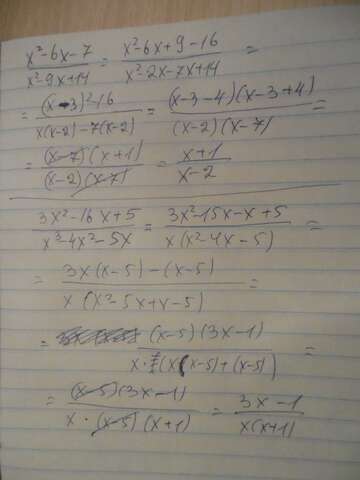 (x²-6x-7)/(x²-9x+14) = (x²-6x+9-16)/(x²-2x-7x+14) =
= ((x-3)²-16)/(x(x-2)-7(x-2)) = ((x-3-4)(x-3+4))/((x-2)(x-7)) =
= ((x-7)(x+1))/((x-2)(x-7)) = (x+1)/(x-2)
(3x²-16x+5)/(x³-4x²-5x) = (3x²-15x-x+5)/(x(x²-4x-5)) =
= (3x(x-5)-(x-5))/(x(x²-5x+x-5)) =
= ((x-5)(3x-1))/(x·(x(x-5)+(x-5))) =
= ((x-5)(3x-1))/(x·(x-5)(x+1)) = (3x-1)/(x(x+1))